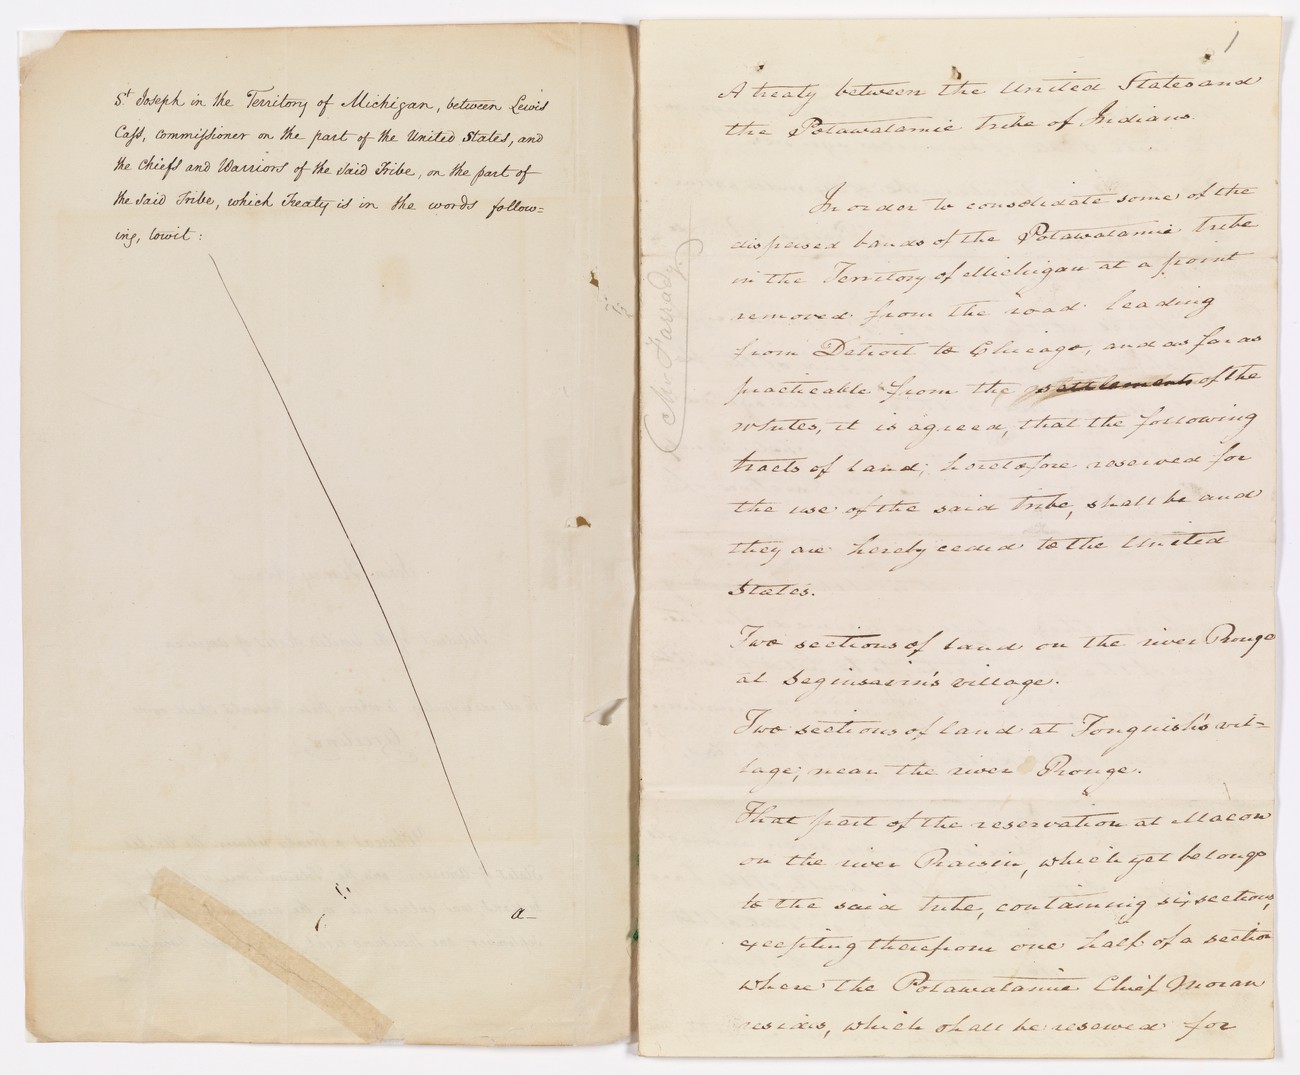 St Joseph in the Territory of Michigan, between Lewis
Cass, commissioner on the part of the United States, and
the Chiefs and Warriors of the said Tribe, on the part of
the said Tribe, which Treaty is in the words follow=
ing, towit:
a-
1
A treaty between the United States and
the Potawatamie tribe of Indians.
In order to consolidate some of the
dispersed bands of the Potawatamie tribe
in the Territory of Michigan at a point
removed from the road leading
from Detroit to Chicago, and as far as
practicable from the settlements of the
whites, it is agreed, that the following
tracts of land, heretofore reserved for
the use of the said tribe, shall be and
they are hereby ceded to the United
States.
Two sections of land on the river Rouge
at Seginsairn's village.
Two sections of land at Tonguish's vil=
lage, near the river Rouge.
That part of the reservation at Macon
on the river Raisin, which yet belongs
to the said tribe, containing six sections,
excepting therefrom one half of a section
where the Potawatamie Chief Moran
resides, which shall be reserved for